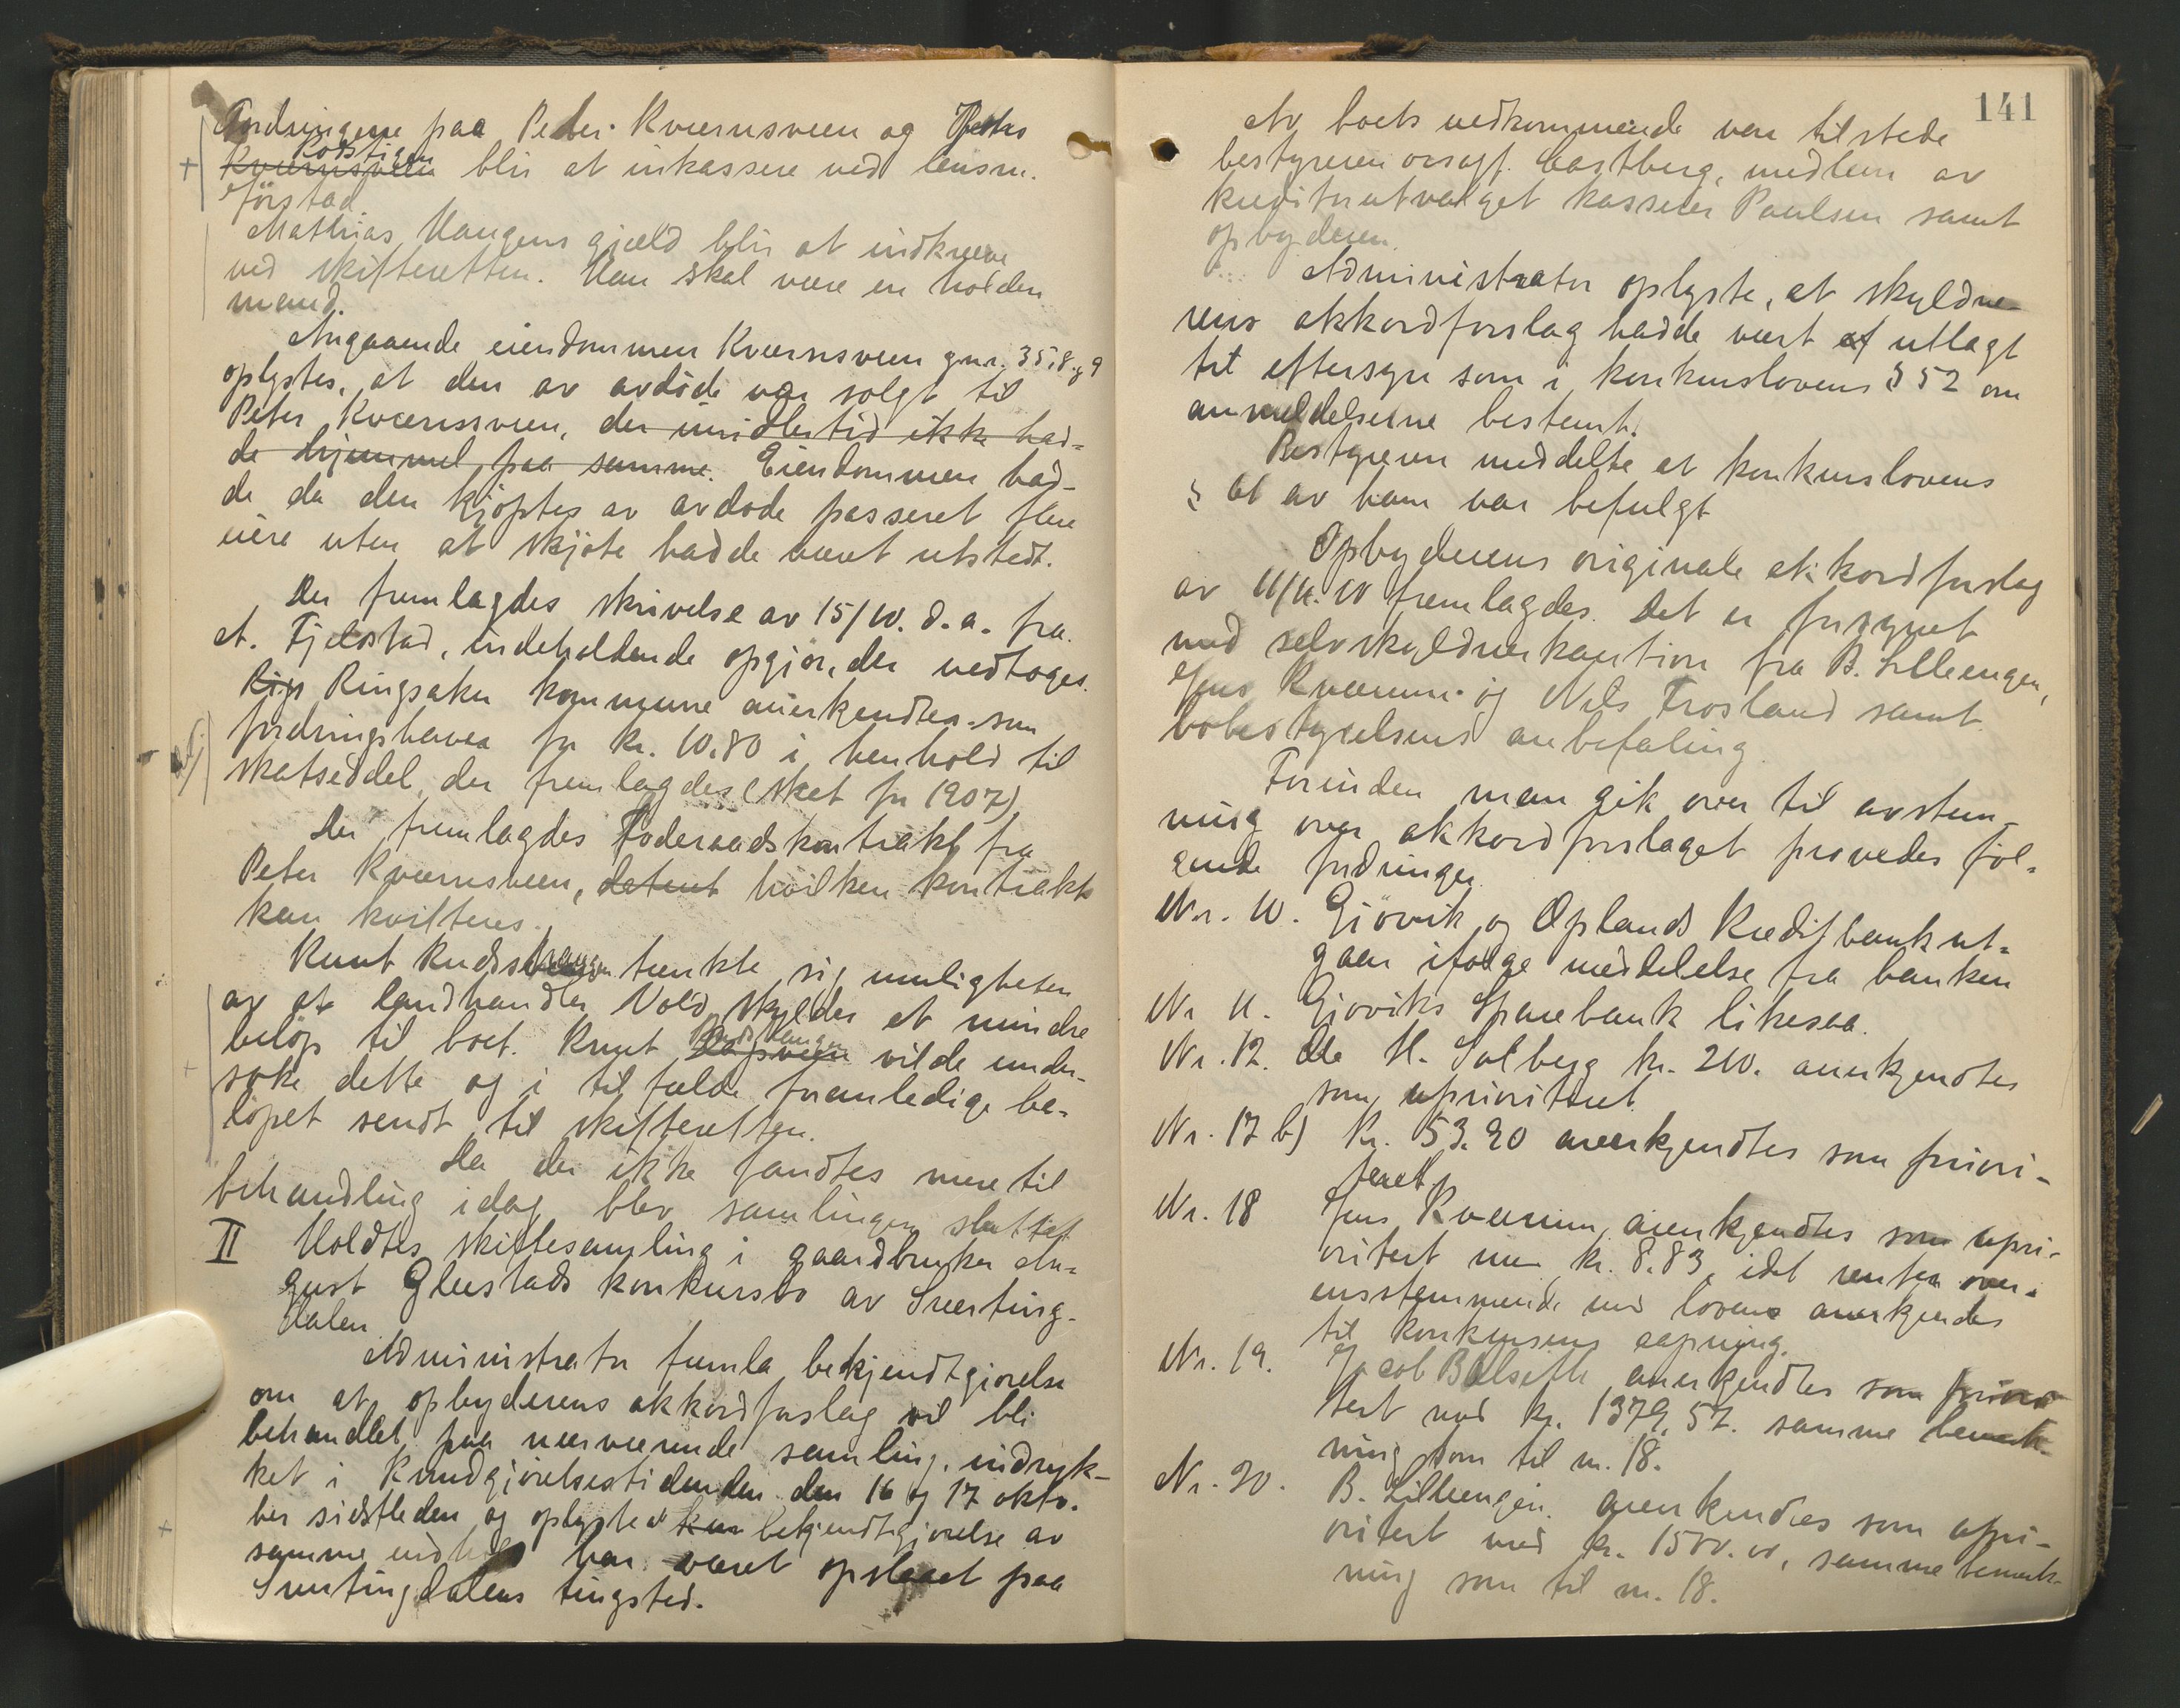 Fordringerne paa Peder Kværnsveen og Petra
Rodstigen
Kværnsveen blir at inkassere ved lensm.
Mathias Haugens gjæld blir at indkræve
ved skifteretten. Han skal være en holden
mand.
Angaaende eiendommen Kværnsveen gnr. 35,8 og 9
oplystes, at den av avdöde var solgt til
Peter Kværnsveen, der imidlertid ikke had-
de hjemmel paa samme. Eiendommen had-
de da den kjöptes av avdøde passeret flere
eiere uten at skjöte hadde været utstedt.
Der fremlagdes skrivelse av 15/10. d. a. fra
A. Fjeldstad, indeholdende opgjör, der vedtoges.
Rigs Ringsaker kommune anerkjendtes som
fordringshaver for kr. 10.80 i henhold til
skatseddel, der fremlagdes (skat for 1907)
Der fremlagdes Föderaadskontrakt fra
Peter Kværnsveen, datert hvilken kontrakt
kan kvitteres.
Knut Rudshaugen tænkte sig muligheten
av at landhandler Vold skylder et mindre
Rudshaugen
belöp til boet. Knut vilde under-
søke dette og i tilfælde foranledige be-
löpet sendt til skifteretten.
Da der ikke fandtes mere til
behandling idag blev samlingen sluttet
II Holdtes skiftesamling i gaardbruker Au-
gust Gleestads konkursbo av Snerting-
dalen
Administrator fremla bekjendtgjørelse
om at opbyderens akkordforslag vil bli
behandlet paa nærværende samling, indryk-
ket i Kundgjörelsestidenden den 16 og 17 okto-
ber sidstleden og oplyste at kun bekjendtgjørelse av
samme indhold har været opslaaet paa
Snertingdalens tingsted.
141
Av boets vedkommende var tilstede
bestyreren ovsagf. Castberg, medlem av
kreditorutvalget kasserer Paulsen samt
opbyderen.
Administrator oplyste, at skyldne-
rens akkordforslag hadde vært at utlagt
til eftersyn som i konkurslovens § 52 om
anmeldelserne bestemt.
Bestyreren meddelte at konkurslovens
§ av ham var befulgt
Opbyderens originale akkordforslag
av 11/11. 10 fremlagdes. Det er forsynet
med selvskyldnerkaution fra B. Lilleengen,
Jens Kværnum og Nils Frosland samt
bobestyrelsens anbefaling
Forinden man gik over til avstem-
ning over akkordforslaget prøvedes föl-
gende fordringer.
Nr. 10. Gjövik og Oplands Kreditbank ut-
gaar ifølge meddelelse fra banken
Nr 11. Gjøviks Sparebank likesaa.
Nr. 12. Ole H. Solberg kr. 210. anerkjendtes
som uprioritert.
Nr. 17 b) Kr. 53.20 anerkjendtes som priori-
teret
Nr. 18 Jens Kværnum anerkjendtes som upri-
oritert med kr. 8.83, idet renten over-
ensstemmende med loven anerkjendes
til konkursens aapning.
Nr. 19. Jacob Bælseth anerkjendtes som priori
tert med kr. 1379,57. samme bemerk-
ning som til nr. 18.
Nr. 20. B. Lilleengen anerkendes som upri-
oritert med kr. 1500.00, samme bemerk-
ning som til nr. 18.